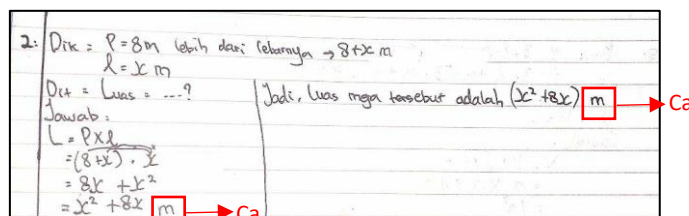 2. Dik = P = 8m lebih dari lebarnya → 8+x m
l = x m
Dit = Luas = ....?
Jawab :
L = P x l
= (8+x) . x
= 8x + x²
= x² + 8x m
Ca
Jadi, luas meja tersebut adalah (x² + 8x) m
Ca